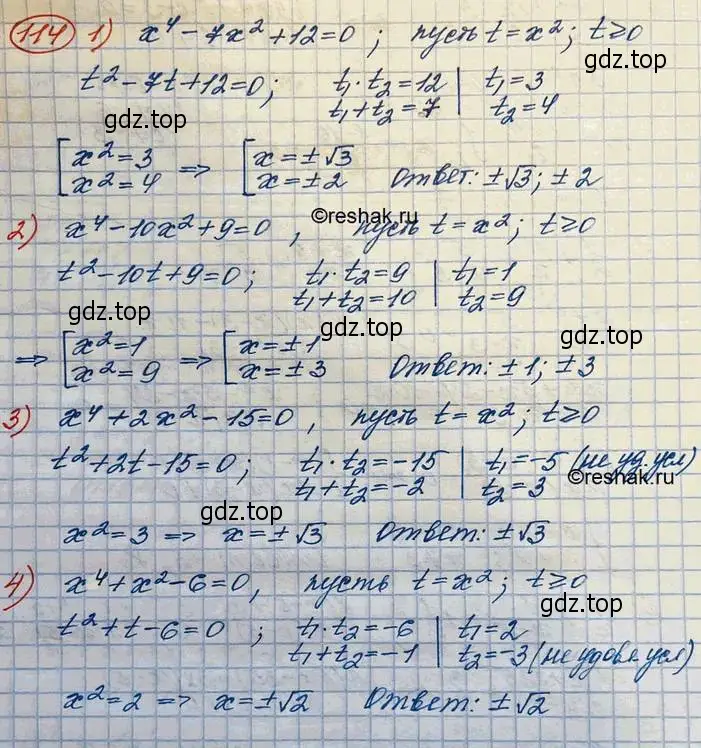 114 1) x⁴ - 7x² + 12 = 0 ; пусть t = x² ; t ≥ 0
t² - 7t + 12 = 0 ; t₁ · t₂ = 12 | t₁ = 3
t₁ + t₂ = 7 | t₂ = 4
gdz.top
[ x² = 3 ⇒ [ x = ± √3
x² = 4 x = ± 2 Ответ: ± √3 ; ± 2
gdz.top
©reshak.ru
2) x⁴ - 10x² + 9 = 0 , пусть t = x² ; t ≥ 0
t² - 10t + 9 = 0 ; t₁ · t₂ = 9 | t₁ = 1
t₁ + t₂ = 10 | t₂ = 9
gdz.top
gdz.top
gdz.top
⇒ [ x² = 1 ⇒ [ x = ± 1
x² = 9 x = ± 3 Ответ: ± 1 ; ± 3
3) x⁴ + 2x² - 15 = 0 , пусть t = x² ; t ≥ 0
t² + 2t - 15 = 0 ; t₁ · t₂ = -15 | t₁ = -5 (не уд. усл)
t₁ + t₂ = -2 | t₂ = 3
©reshak.ru
gdz.top
x² = 3 ⇒ x = ± √3 Ответ: ± √3
4) x⁴ + x² - 6 = 0 , пусть t = x² ; t ≥ 0
gdz.top
t² + t - 6 = 0 ; t₁ · t₂ = -6 | t₁ = 2
t₁ + t₂ = -1 | t₂ = -3 (не удовл усл)
x² = 2 ⇒ x = ± √2 Ответ: ± √2